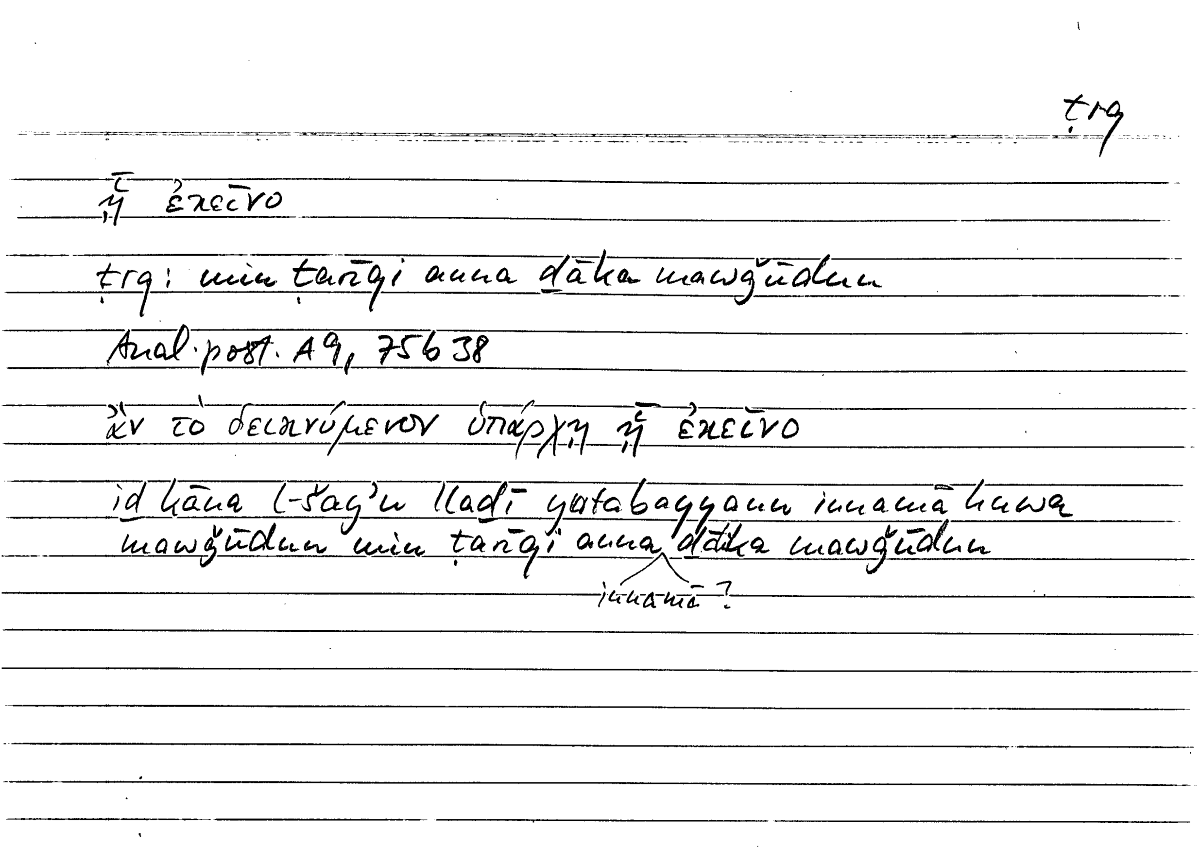 ṭrq
ᾗ ἐκεῖνο
ṭrq: min ṭarīqi anna ḏāka mawǧūdun
Anal. post. A 9, 75b 38
ἂν τὸ δεικνύμενον ὑπάρχῃ ᾗ ἐκεῖνο
iḏ kāna l-šay’u llaḏī yatabayyanu innamā huwa
mawǧūdun min ṭarīqi anna ḏāka mawǧūdun
innamā?